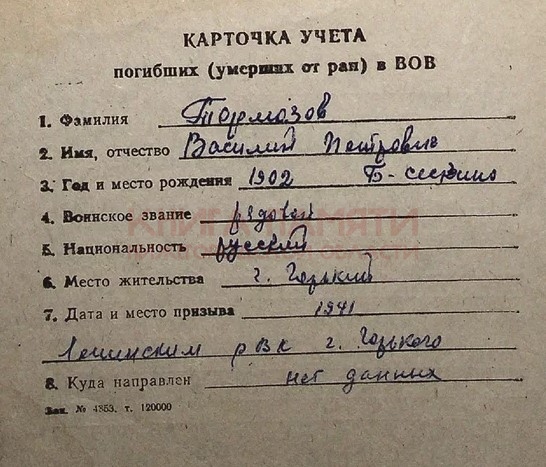 КАРТОЧКА УЧЕТА
погибших (умерших от ран) в ВОВ
1. Фамилия Тормозов
2. Имя, отчество Василий Петрович
3. Год и место рождения 1902 Б-
КНИГА ПАМЯТИ
4. Воинское звание рядовой
5. Национальность русский
6. Место жительства г. Горький
7. Дата и место призыва 1941
Ленинским РВК г. Горького
8. Куда направлен нет данных
Зак. № 4353. т. 120000